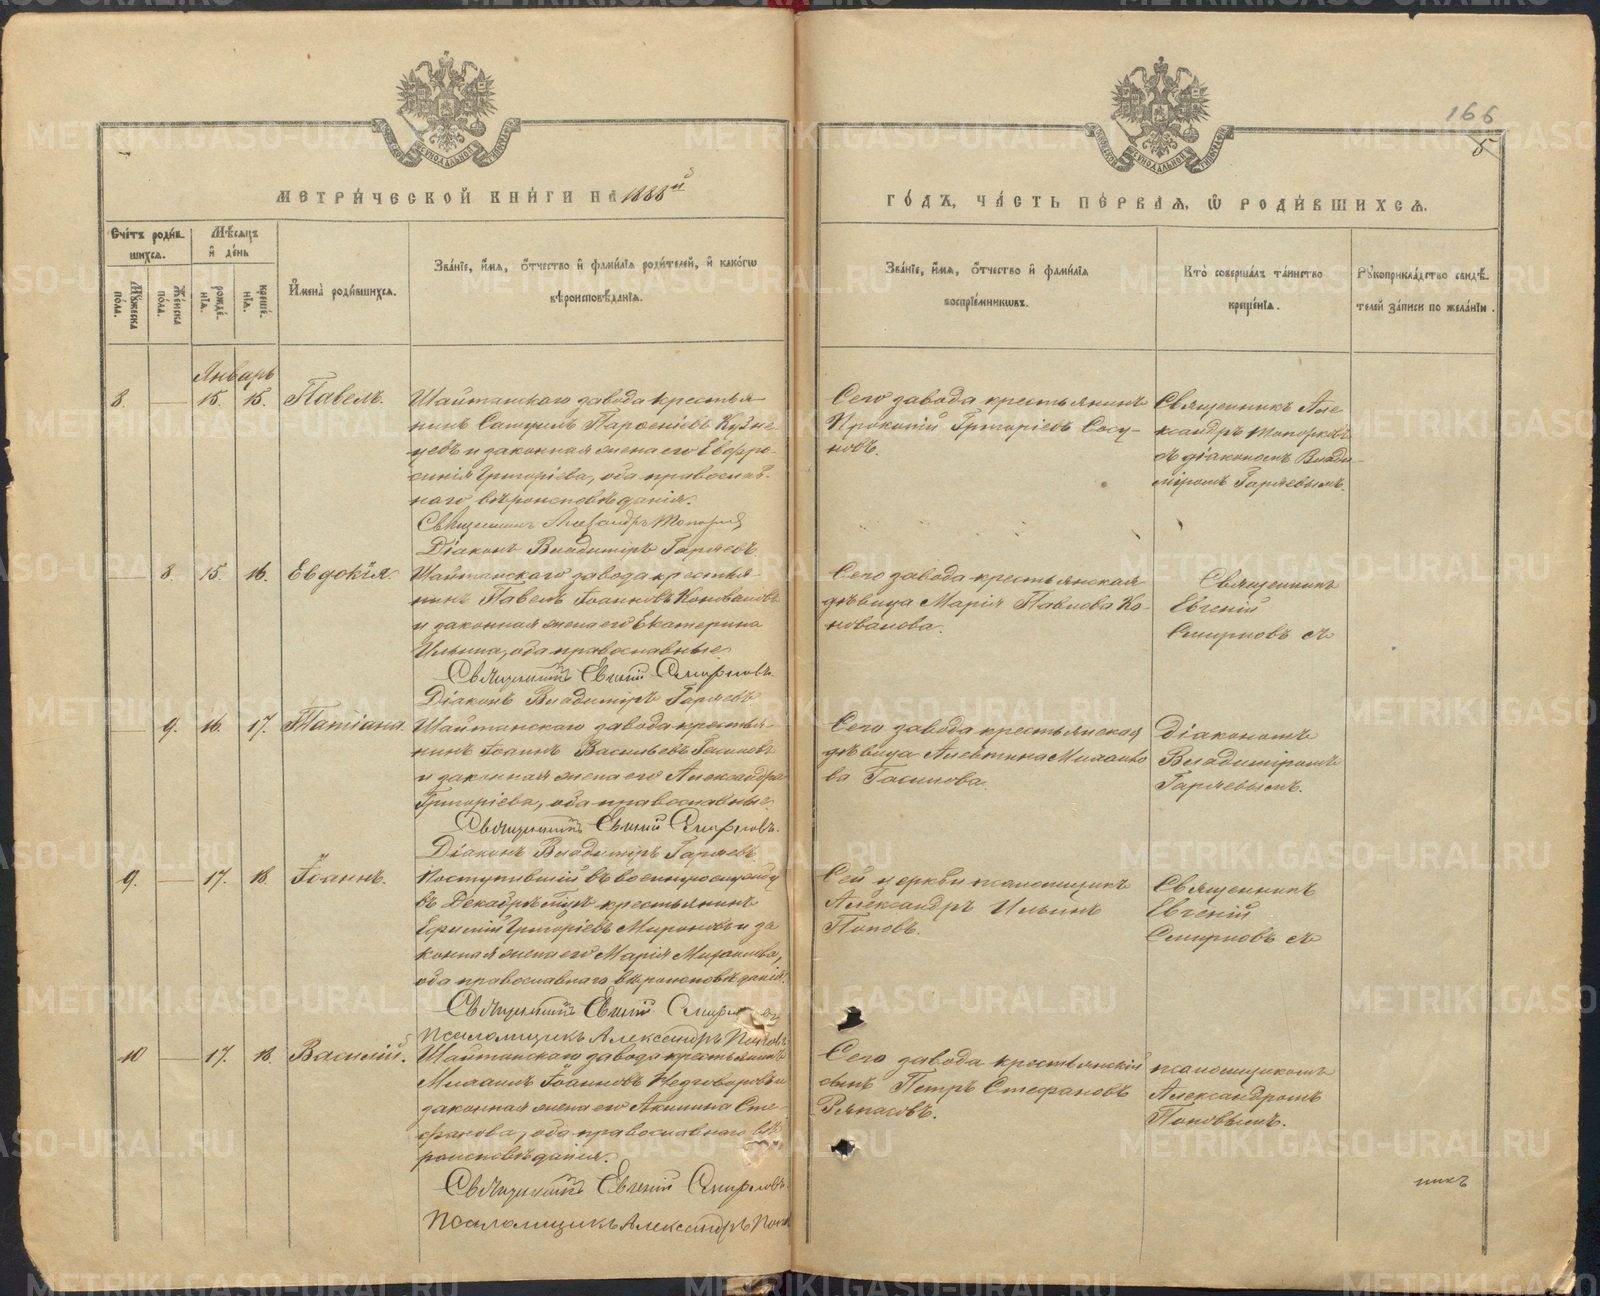 166
5
МЕТРИЧЕСКОЙ КНИГИ НА 1888й
ГОДЪ, ЧАСТЬ ПЕРВАЯ, Ѡ РОДИВШИХСЯ.
Счетъ родив-
шихся.
Мужеска
пола.
Женска
пола.
Мѣсяцъ
и день
рожде-
нія.
креще-
нія.
Имена родившихся.
Званіе, имя, отчество и фамилія родителей, и какого
вѣроисповѣданія.
Званіе, имя, отчество и фамилія
воспріемниковъ.
Кто совершалъ таинство
крещенія.
Рукоприкладство свидѣ-
телей записи по желанію.
Январь
8. 15. 15. Павелъ.
Шайтанскаго завода крестья-
нинъ Самуилъ Парѳеніевъ Кузне-
цовъ и законная жена его Евфро-
синія Григоріева, оба православ-
наго вѣроисповѣданія.
Священникъ Александръ Топорковъ
Діаконъ Владиміръ Гаряевъ
Сего завода крестьянинъ
Прокопій Григоріевъ Сосу-
новъ.
Священникъ Але-
ксандръ Топорковъ
съ діакономъ Влади-
міромъ Гаряевымъ.
8. 15. 16. Евдокія.
Шайтанскаго завода крестья-
нинъ Павелъ Іоанновъ Коноваловъ
и законная жена его Екатерина
Ильина, оба православные
Священникъ Евгеній Смирновъ
Діаконъ Владиміръ Гаряевъ
Сего завода крестьянская
дѣвица Марія Павлова Ко-
новалова.
Священникъ
Евгеній
Смирновъ
9. 16. 17. Татіана.
Шайтанскаго завода крестья-
нинъ Іоаннъ Васильевъ
и законная жена его Александра
Григоріева, оба православные
Священникъ Евгеній Смирновъ.
Діаконъ Владиміръ Гаряевъ
Сего завода крестьянская
дѣвица
Діакономъ
Владиміромъ
Гаряевымъ.
9. 17. 18. Іоаннъ.
Поступившій въ военную службу
въ Декабрѣ крестьянинъ
Григоріевъ Мироновъ и за-
конная жена его Марія Михаилова,
оба православнаго вѣроисповѣданія.
Священникъ Евгеній Смирновъ
Псаломщикъ Александръ Поповъ
Сей церкви псаломщикъ
Александръ Ильинъ
Поповъ.
Священникъ
Евгеній
Смирновъ
10 17. 18. Василій.
Шайтанскаго завода крестьянинъ
Іоанновъ и
законная жена его Акилина Сте-
фанова, оба православнаго вѣ-
роисповѣданія.
Священникъ Евгеній Смирновъ
Псаломщикъ Александръ Поповъ
Сего завода крестьянскій
сынъ Петръ Стефановъ
псаломщикомъ
Александромъ
Поповымъ.
никъ